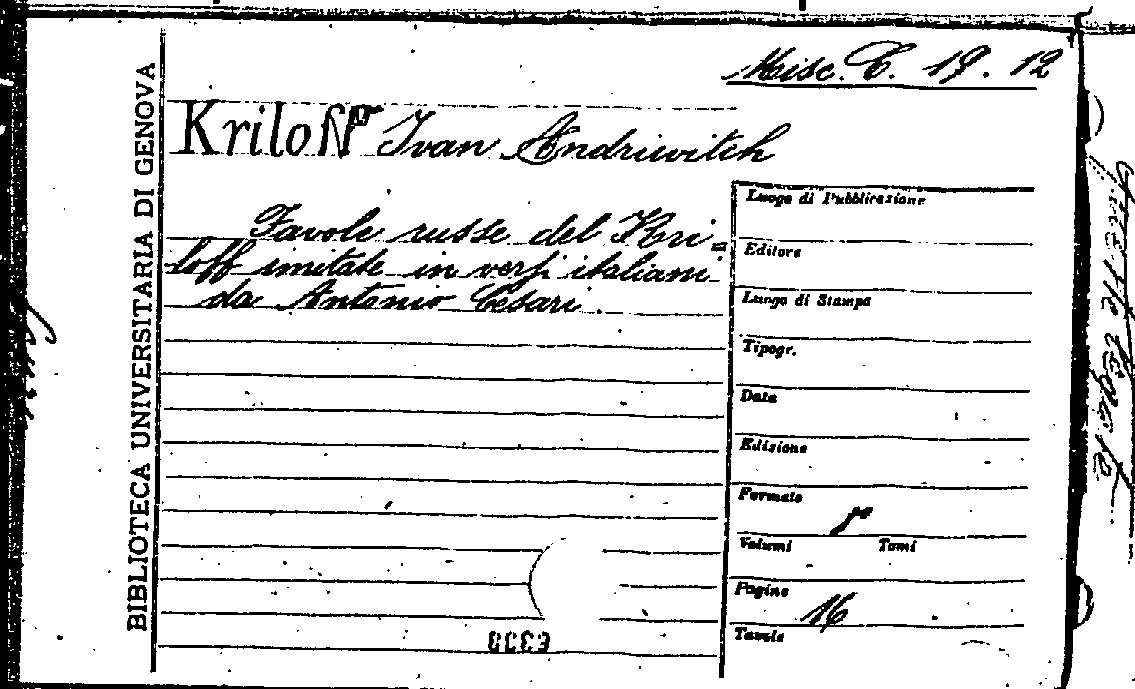 Misc. C. 19. 12
BIBLIOTECA UNIVERSITARIA DI GENOVA
Kriloff Ivan Andriewitch
Favole russe del Kri=
loff imitate in versi italiani
da Antonio Cesari.
Luogo di Pubblicazione
Editore
Luogo di Stampa
Tipogr.
Data
Edizione
Formato 8°
Volumi Tomi
Pagine 16
Tavole